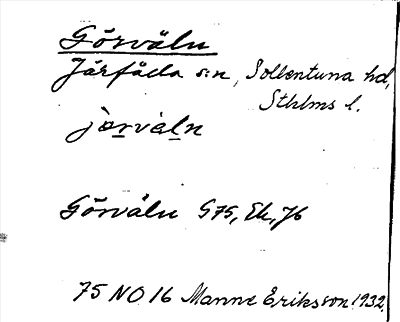 Görväln
Järfälla s:n, Sollentuna hd,
Sthlms l.
jærvàln
Görväln G75, Ek, 76
75 NO 16 Manne Eriksson 1932